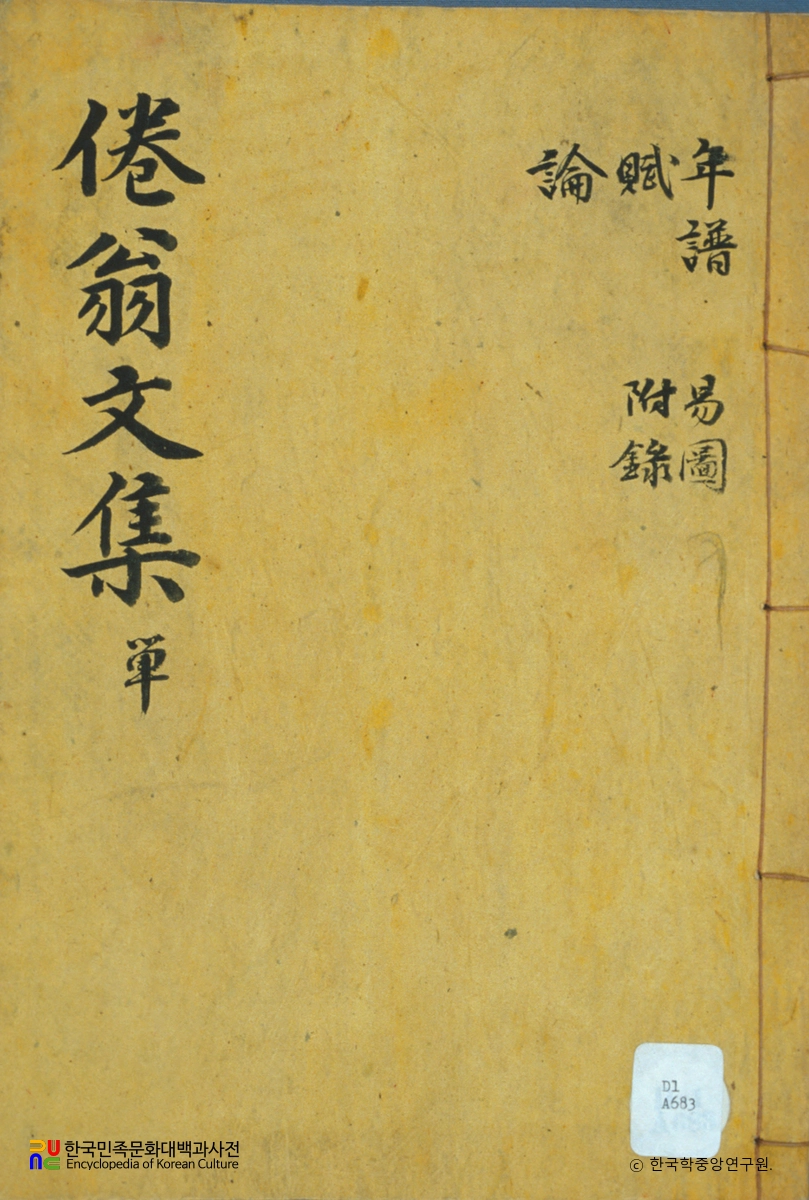 年譜 易圖
賦 附錄
論
倦翁文集 單
D1
A683
한국민족문화대백과사전
Encyclopedia of Korean Culture
ⓒ 한국학중앙연구원.